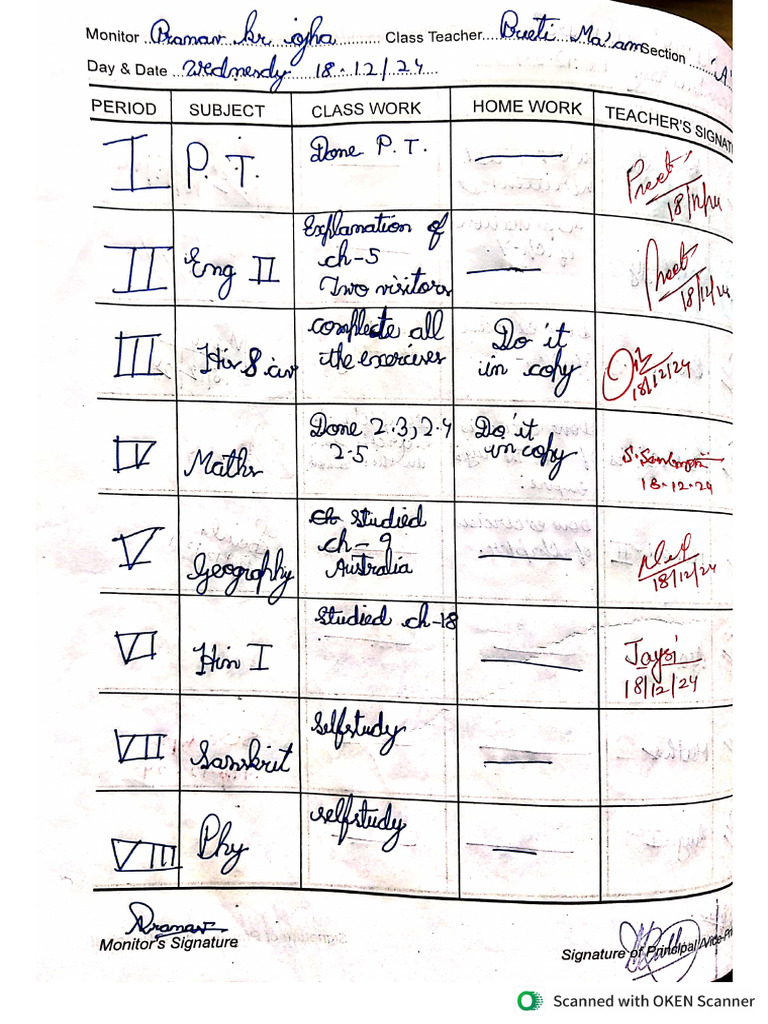 Monitor Pranav kr ojha Class Teacher Preeti Ma'am Section 'A'
Day & Date Wednesdy 18.12/24
PERIOD SUBJECT CLASS WORK HOME WORK TEACHER'S SIGNAT
I P.T. Done P.T. —
18/12/24
II Eng II Explanation of
ch-5
Two visitors —
18/12/24
III complecte all
the exercises Do it
in copy
18/12/24
IV Maths Done 2.3, 2.4
2.5 Do it
in copy
18.12.24
V Geography studied
ch-9
Australia —
18/12/24
VI Hin I Studied ch-18 —
18/12/24
VII Sanskrit Selfstudy —
VIII Phy selfstudy —
Pranav
Monitor's Signature
Signature of Principal/Vice-Pr
Scanned with OKEN Scanner